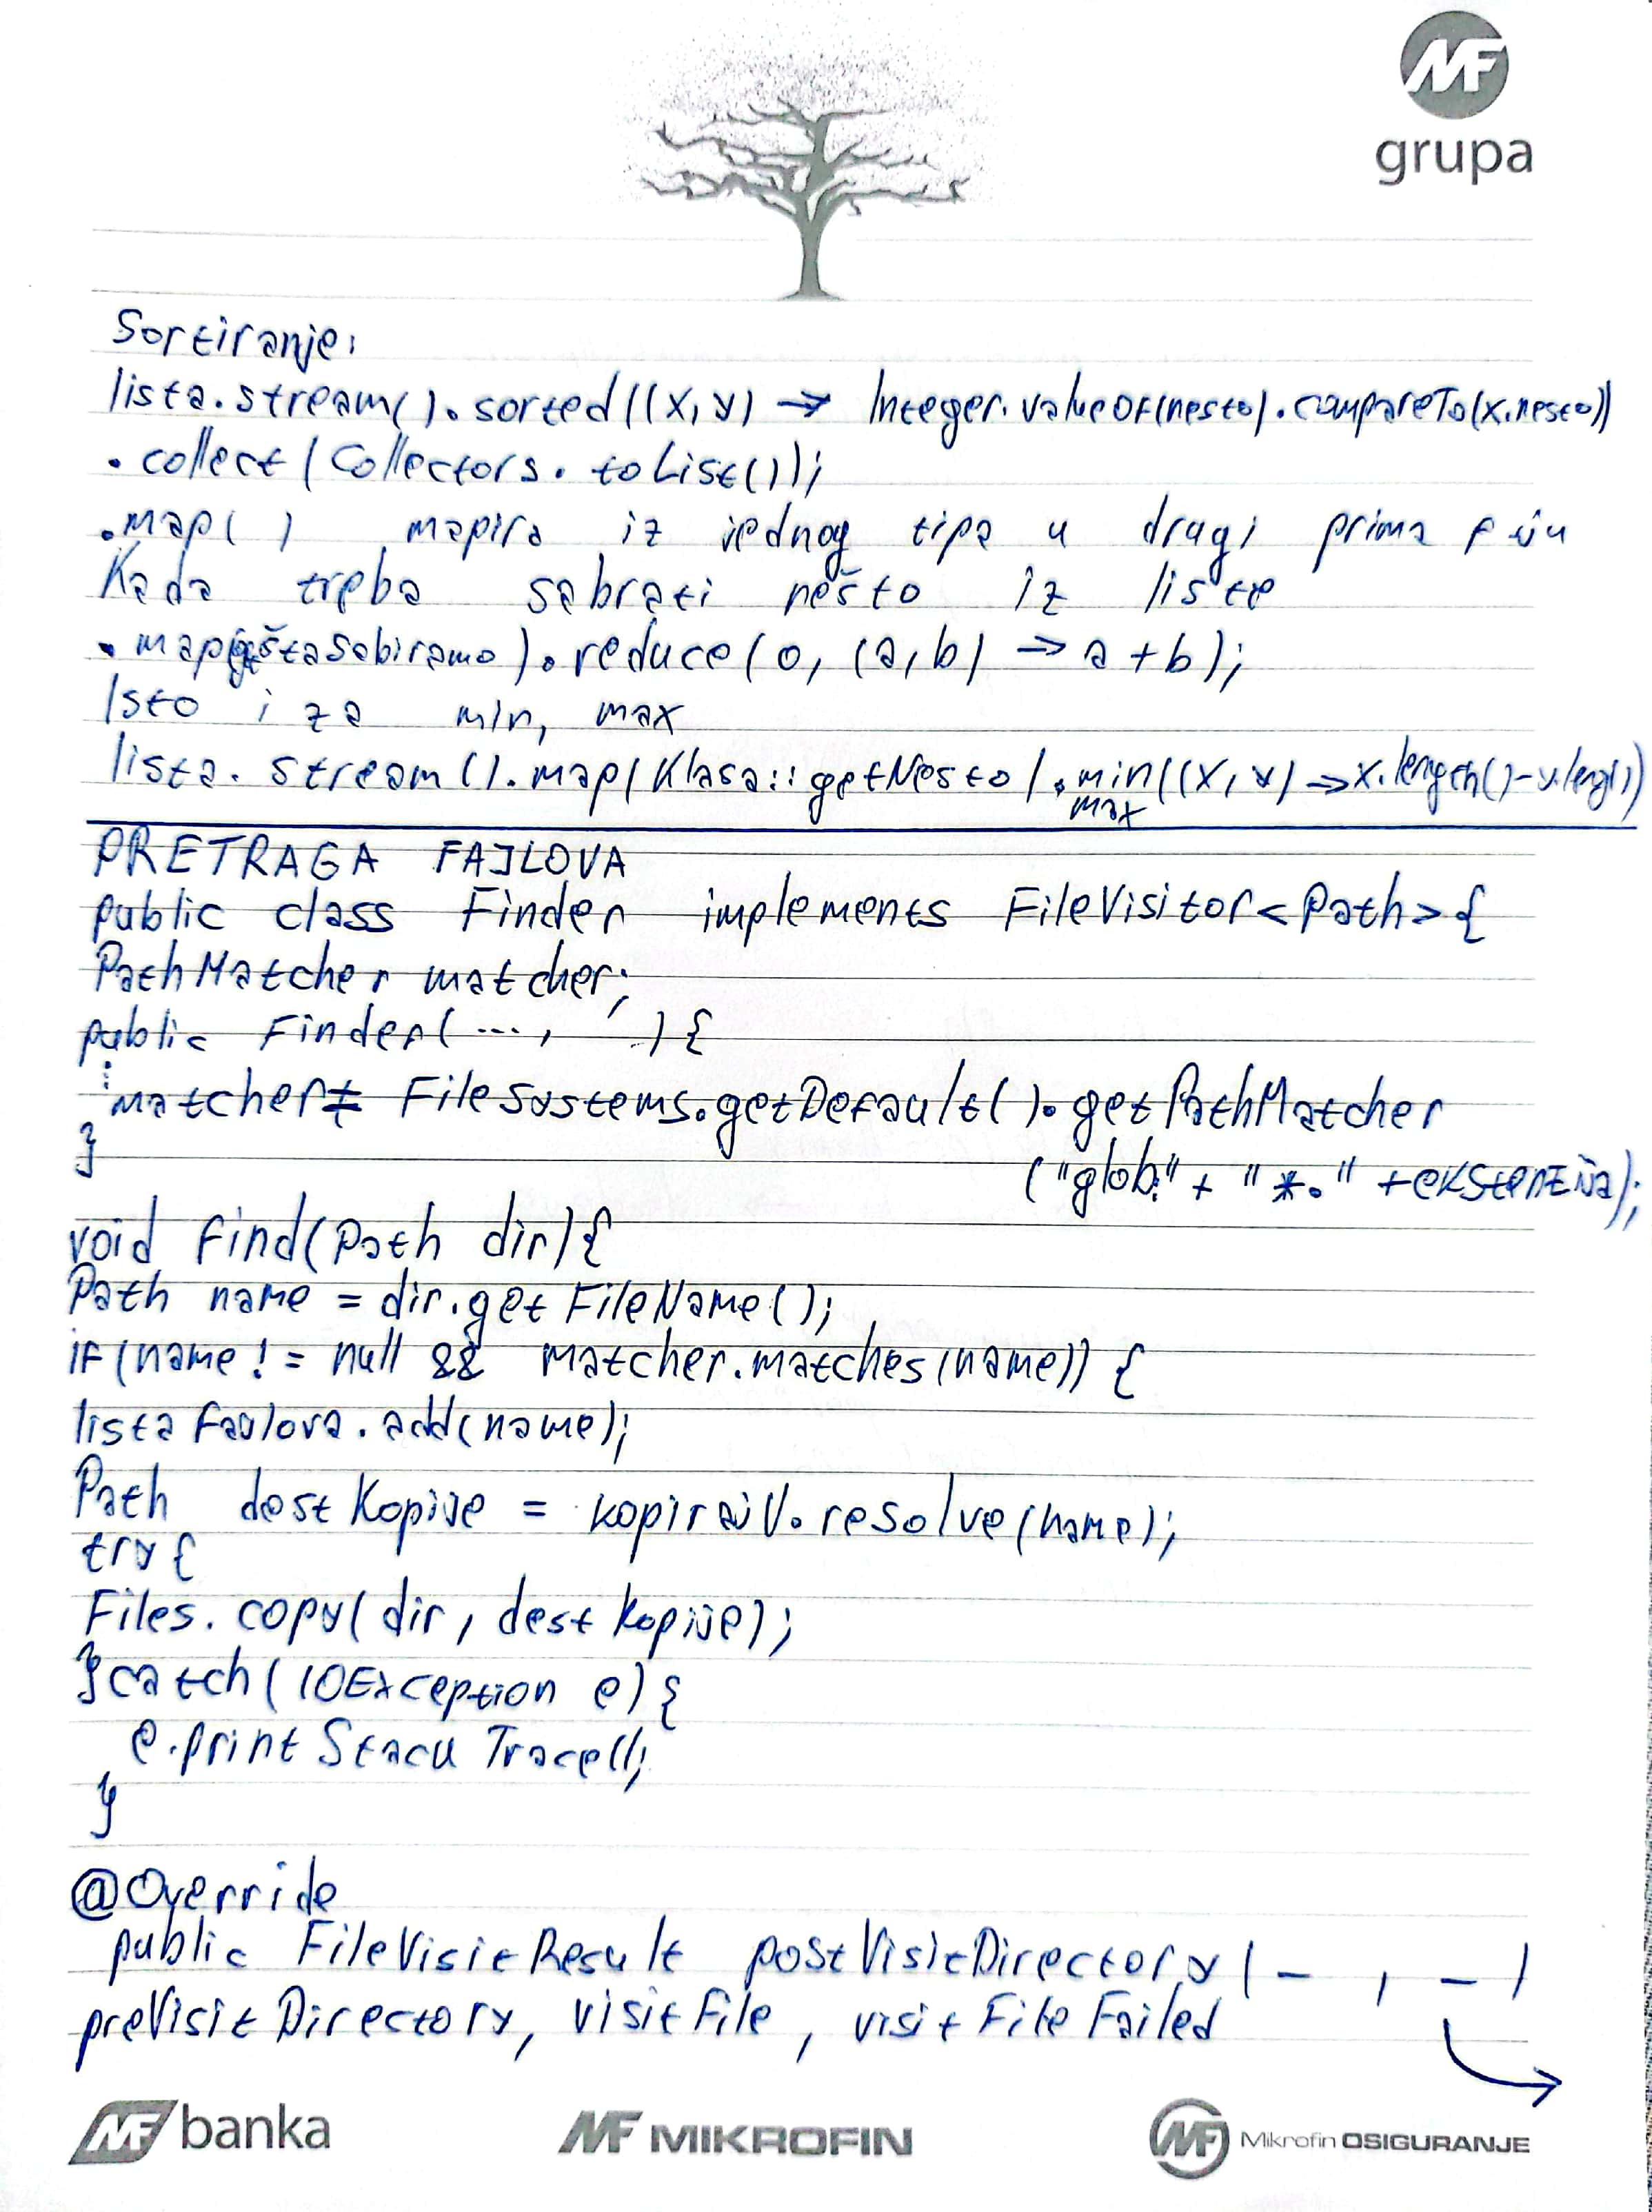 MF
grupa
Sortiranje:
lista.stream().sorted((x,y) → Integer.valueOf(nesto).compareTo(x.nesto))
.collect(Collectors.toList());
.map( ) mapira iz jednog tipa u drugi prima f-iju
Kada treba sabrati nešto iz liste
.map(štaSabiramo).reduce(0, (a,b) → a+b);
Isto i za min, max
lista.stream().map(Klasa::getNesto).min((x,y) → x.length()-y.leng())
max
PRETRAGA FAJLOVA
public class Finder implements FileVisitor<Path>{
PathMatcher matcher;
public Finder(..., ){
matcher= FileSystems.getDefault().getPathMatcher
}
("glob:" + "*." +ekstenzija);
void find(Path dir){
Path name = dir.getFileName();
if(name != null && matcher.matches(name)) {
listaFajlova.add(name);
Path destKopije = kopirajU.resolve(name);
try{
Files.copy(dir, destKopije);
}catch(IOException e){
e.printStackTrace();
}
@Override
public FileVisitResult postVisitDirectory(_ , _)
preVisitDirectory, visitFile, visitFileFailed
MF banka
MF MIKROFIN
MF Mikrofin OSIGURANJE